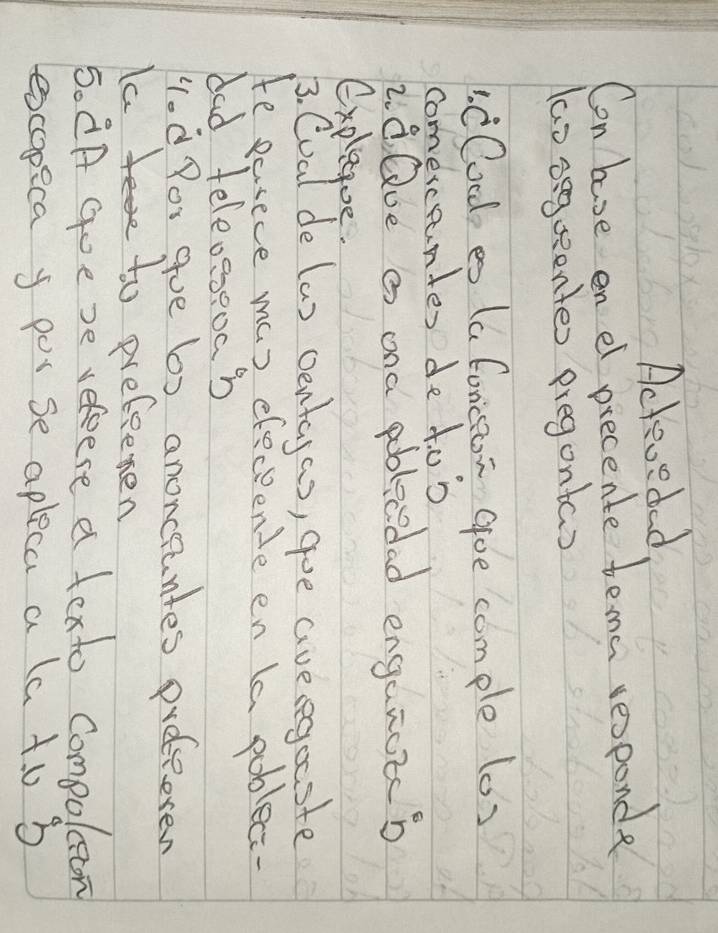 Actividad
Con base en el precente tema responde
las siguientes preguntas
1. ¿Cual es la función que comple los
comerciantes de t.v?
2. ¿Que es una publicidad engañoza?
Explique.
3. Cual de las ventajas, que averiguaste
te parece mas eficiente en la publici-
dad televisiva?
4. ¿Por que los anunciantes prefieren
la tv prefieren
5. ¿A que se refiere el texto Compulcion
escopica y por se aplica a la t.v?